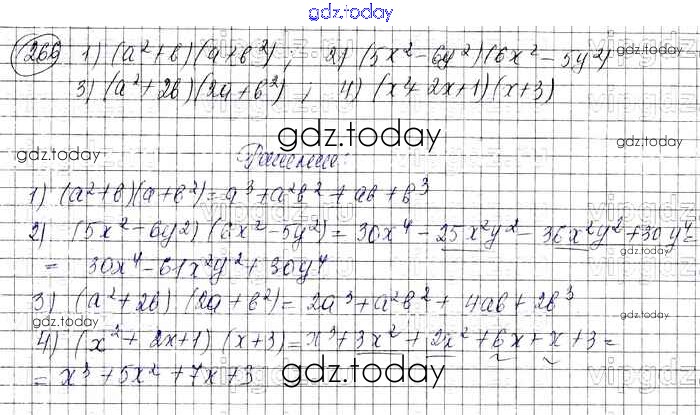 gdz.today
266 1) (a²+b)(a+b²); 2) (5x²-6y²)(6x²-5y²)
3) (a²+2b)(2a+b²); 4) (x²+2x+1)(x+3)
gdz.today
gdz.today
gdz.today
Решение:
1) (a²+b)(a+b²)=a³+a²b²+ab+b³
2) (5x²-6y²)(6x²-5y²)=30x⁴-25x²y²-36x²y²+30y⁴=
= 30x⁴-61x²y²+30y⁴
3) (a²+2b)(2a+b²)=2a³+a²b²+4ab+2b³
gdz.today
gdz.today
4) (x²+2x+1)(x+3)=x³+3x²+2x²+6x+x+3=
= x³+5x²+7x+3
gdz.today